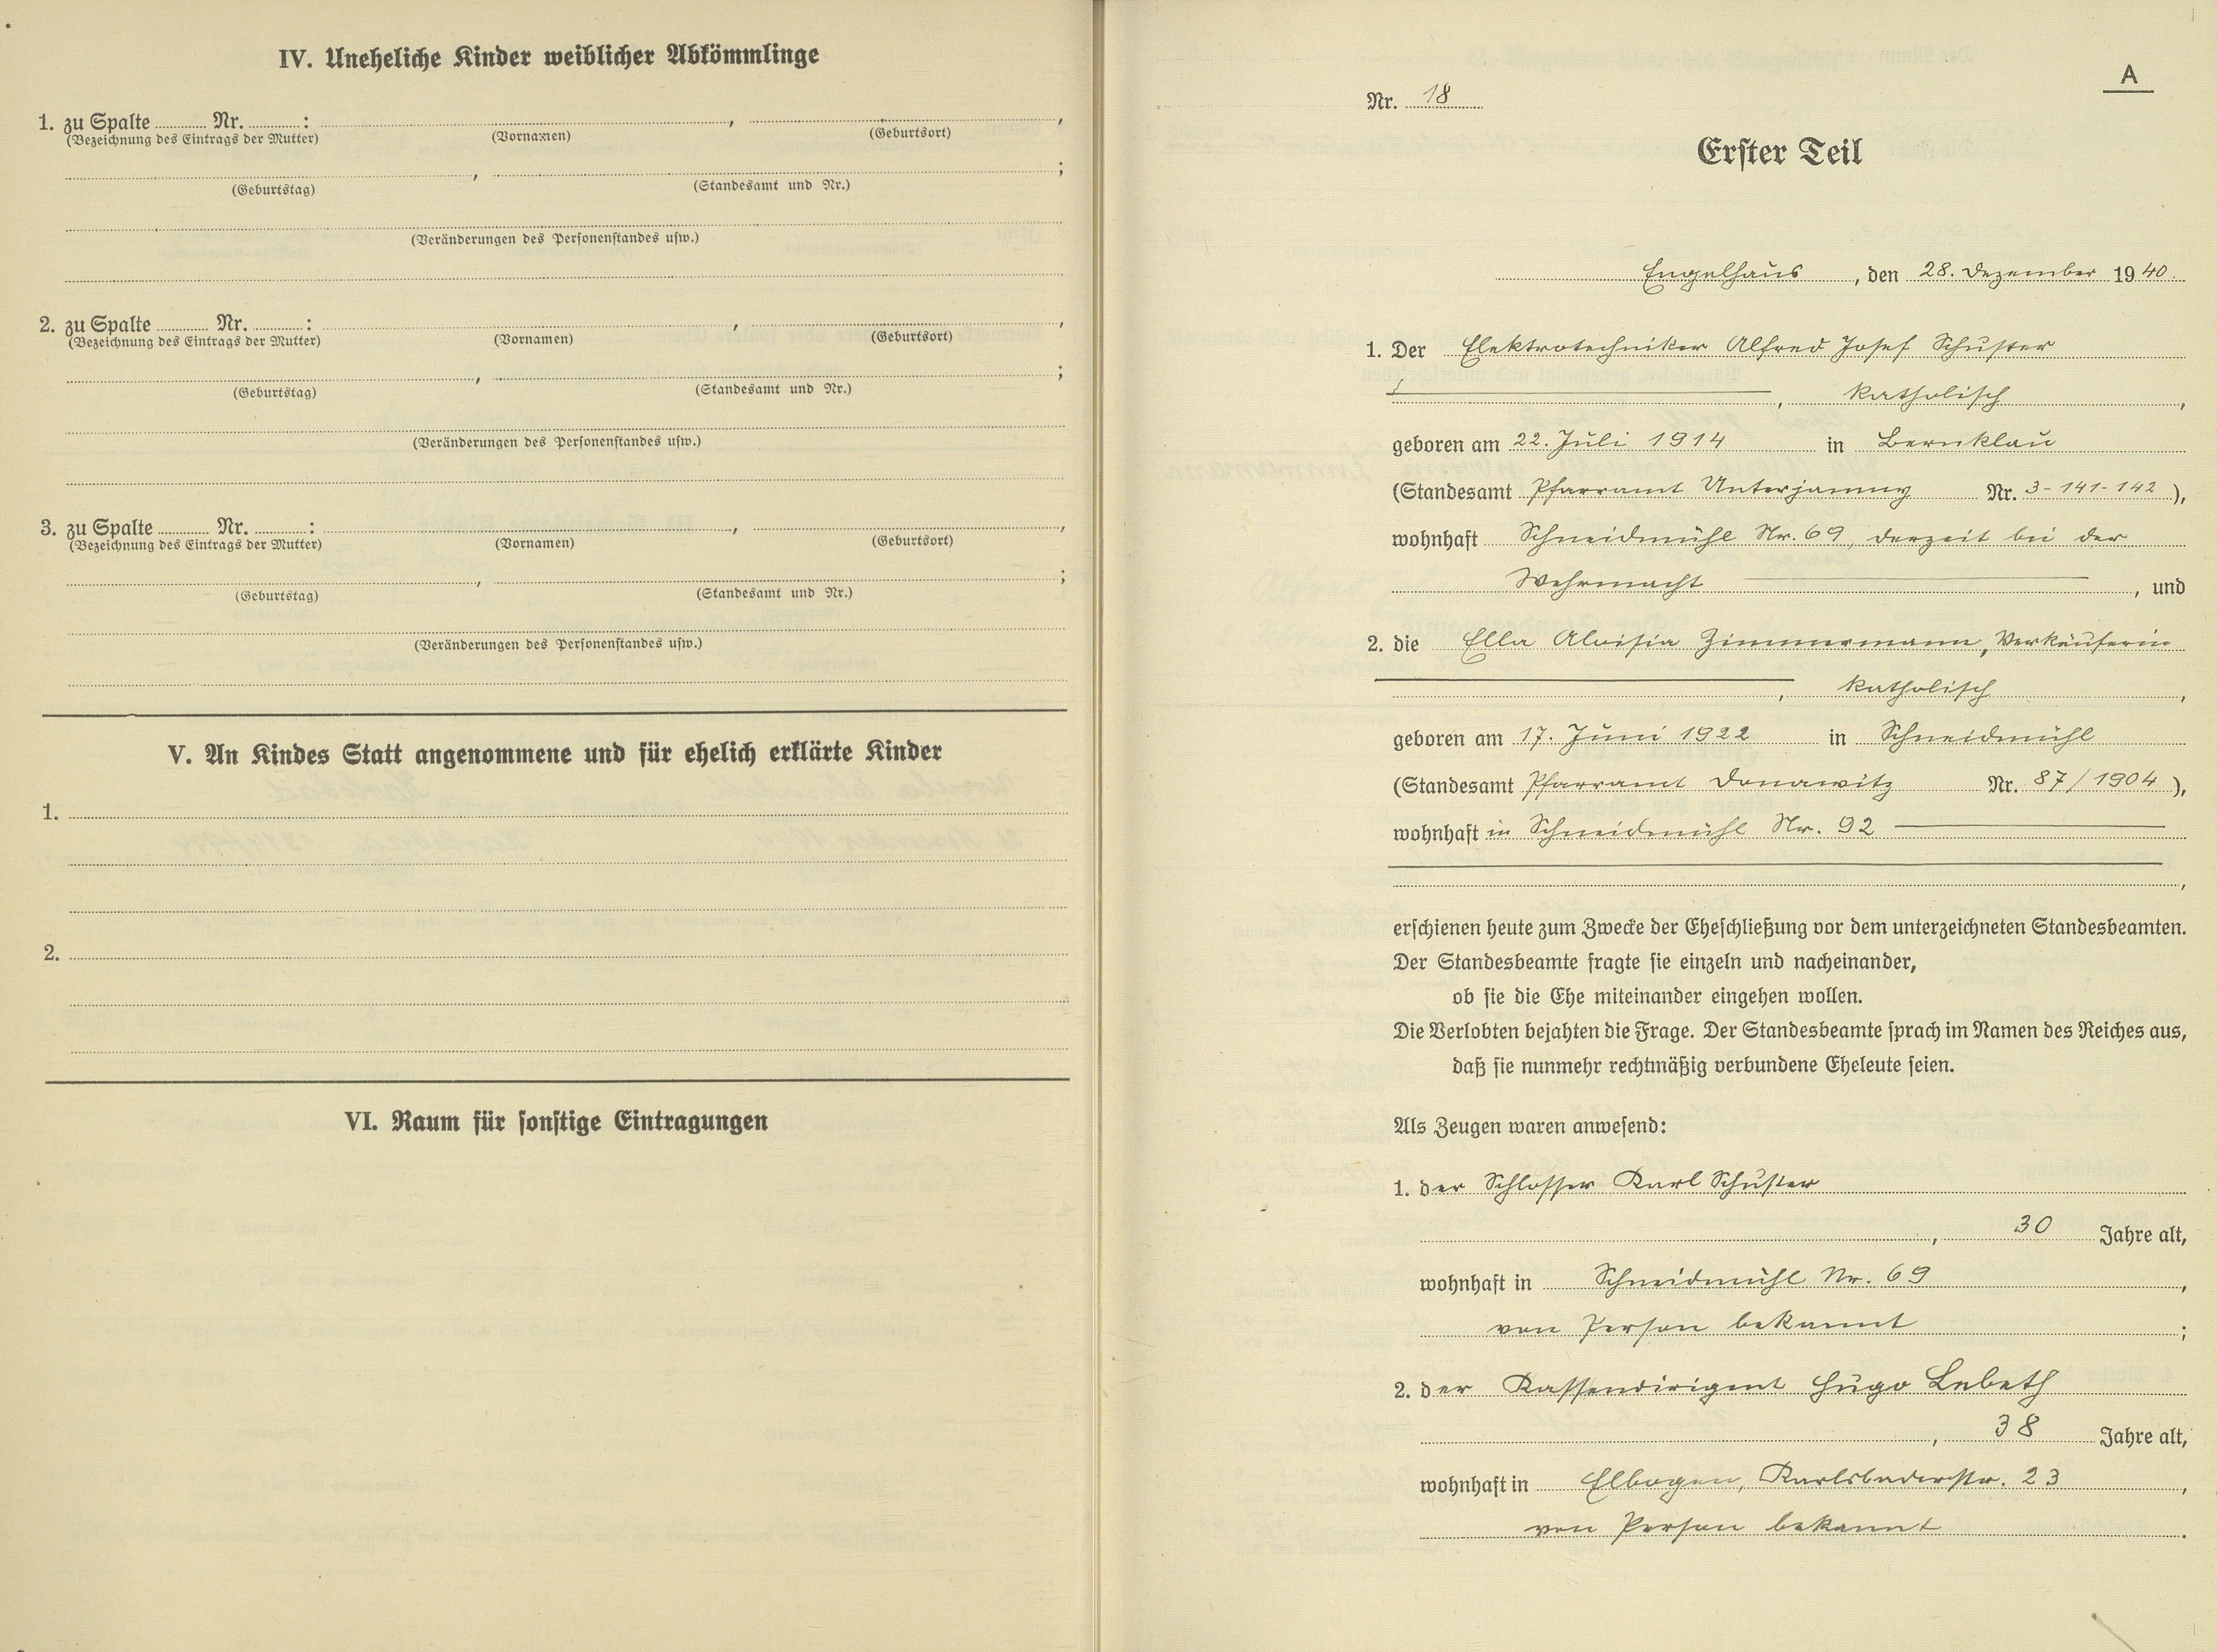 IV. Uneheliche Kinder weiblicher Abkömmlinge
1. zu Spalte ........ Nr. ........ : ........ , ........ ,
(Bezeichnung des Eintrags der Mutter) (Vornamen) (Geburtsort)
........ , ........ ;
(Geburtstag) (Standesamt und Nr.)
(Veränderungen des Personenstandes usw.)
2. zu Spalte ........ Nr. ........ : ........ , ........ ,
(Bezeichnung des Eintrags der Mutter) (Vornamen) (Geburtsort)
........ , ........ ;
(Geburtstag) (Standesamt und Nr.)
(Veränderungen des Personenstandes usw.)
3. zu Spalte ........ Nr. ........ : ........ , ........ ,
(Bezeichnung des Eintrags der Mutter) (Vornamen) (Geburtsort)
........ , ........ ;
(Geburtstag) (Standesamt und Nr.)
(Veränderungen des Personenstandes usw.)
V. An Kindes Statt angenommene und für ehelich erklärte Kinder
1.
2.
VI. Raum für sonstige Eintragungen
A
Nr. 18
Erster Teil
Engelhaus, den 28. Dezember 1940.
1. Der Elektrotechniker Alfred Josef Schuster
, katholisch,
geboren am 22. Juli 1914 in Bernklau
(Standesamt Pfarramt Unterjamny Nr. 3-141-142),
wohnhaft Schneidmühl Nr. 69, derzeit bei der
Wehrmacht, und
2. die Ella Aloisia Zimmermann, Verkäuferin
, katholisch,
geboren am 17. Juni 1922 in Schneidmühl
(Standesamt Pfarramt Donawitz Nr. 87/1904),
wohnhaft in Schneidmühl Nr. 92
,
erschienen heute zum Zwecke der Eheschließung vor dem unterzeichneten Standesbeamten.
Der Standesbeamte fragte sie einzeln und nacheinander,
ob sie die Ehe miteinander eingehen wollen.
Die Verlobten bejahten die Frage. Der Standesbeamte sprach im Namen des Reiches aus,
daß sie nunmehr rechtmäßig verbundene Eheleute seien.
Als Zeugen waren anwesend:
1. der Schlosser Karl Schuster
, 30 Jahre alt,
wohnhaft in Schneidmühl Nr. 69,
von Person bekannt;
2. der Kassendirigent Hugo Lebeth
, 38 Jahre alt,
wohnhaft in Elbogen, Karlsbaderstr. 23,
von Person bekannt.